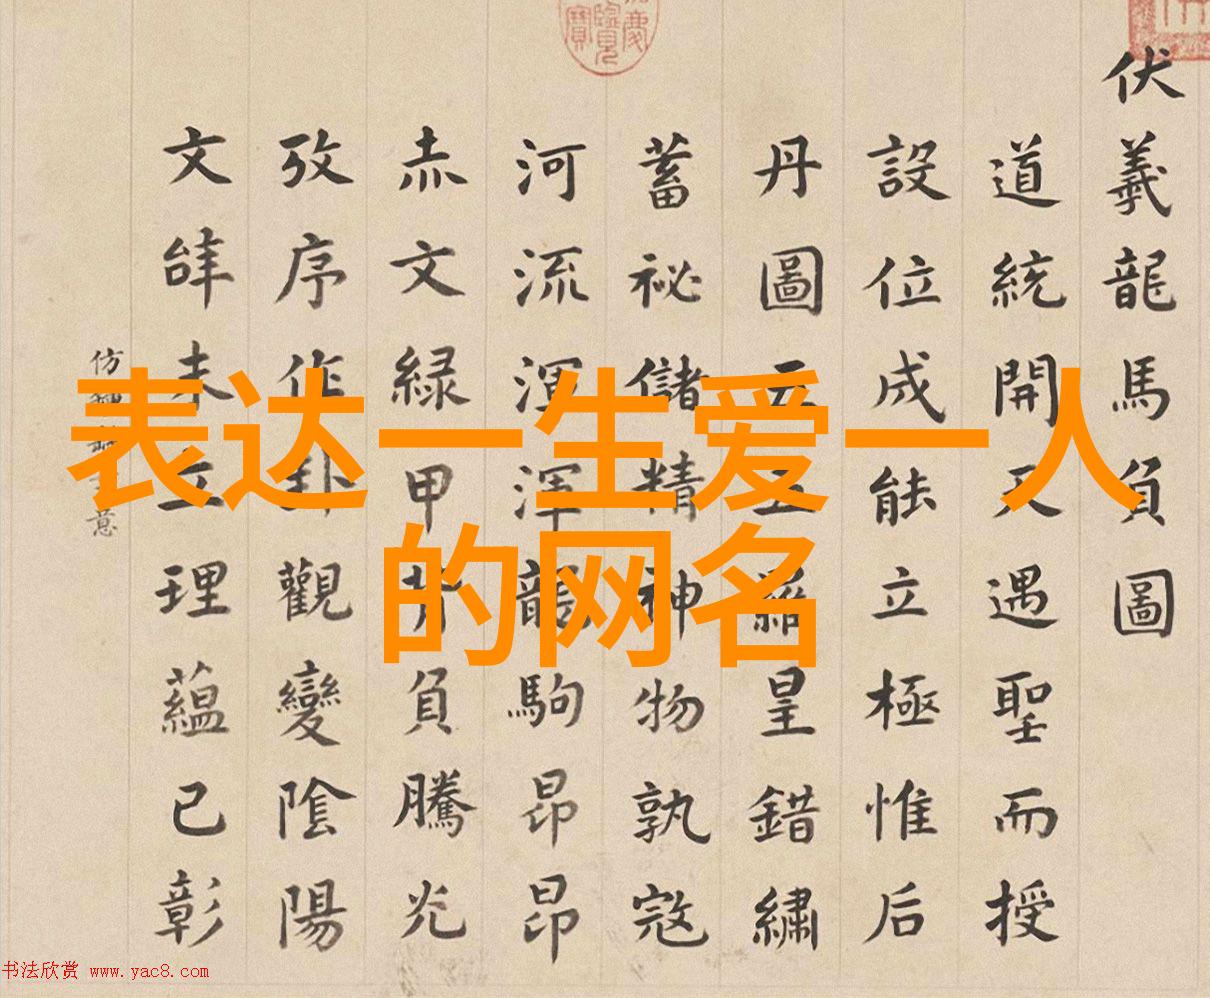 伏羲龍馬負圖
道統開天遇聖而授
設位成能立極惟后
丹圖 五 皇錯繡
蓄祕儲精神物孰
河流渾渾龍駒昂昂
赤文緑甲背負騰光
攷序作卦觀變陰陽
文辭未立理蘊已彰
仿 意
表达一生爱一人
的网名
书法欣赏 www.yac8.com